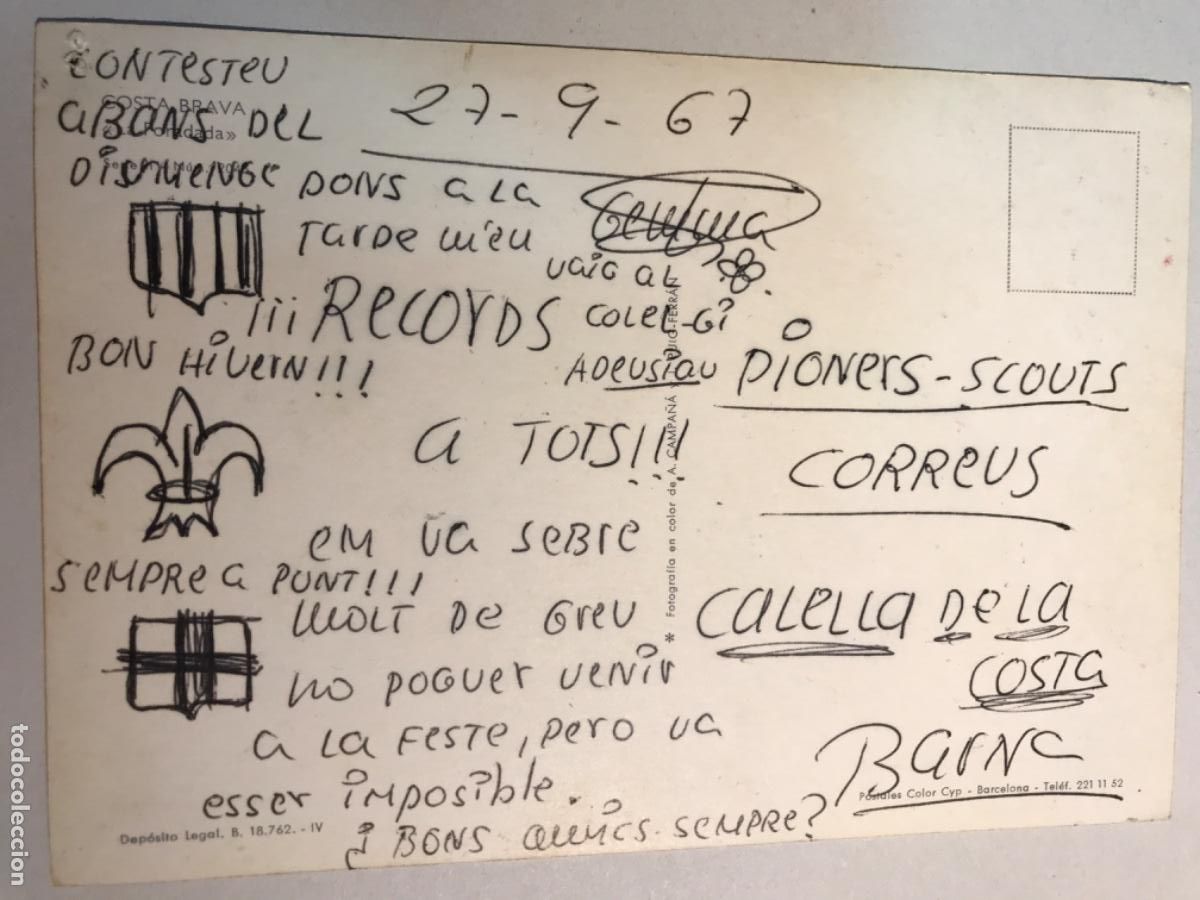 CONTESTEU
ABANS DEL
DISMENGE
COSTA BRAVA
«La Foradada»
27-9-67
DONS A LA
TARDE M'EU
VAIG AL
COLEL-GI
ADEUSIAU
Gemma
¡¡¡RECORDS
BON HIVERN!!!
A TOTS!!!
EM VA SEBRE
SEMPRE A PUNT!!!
MOLT DE GREU
NO POGUER VENIR
A LA FESTE, PERO VA
ESSER IMPOSIBLE.
¿BONS AMICS SEMPRE?
PIONERS-SCOUTS
CORREUS
CALELLA DE LA
COSTA
BARNA
* Fotografía en color de A. CAMPAÑÁ y J. PUIG-FERRÁN
Postales Color Cyp - Barcelona - Teléf. 221 11 52
Depósito Legal. B. 18.762. - IV
todocoleccion